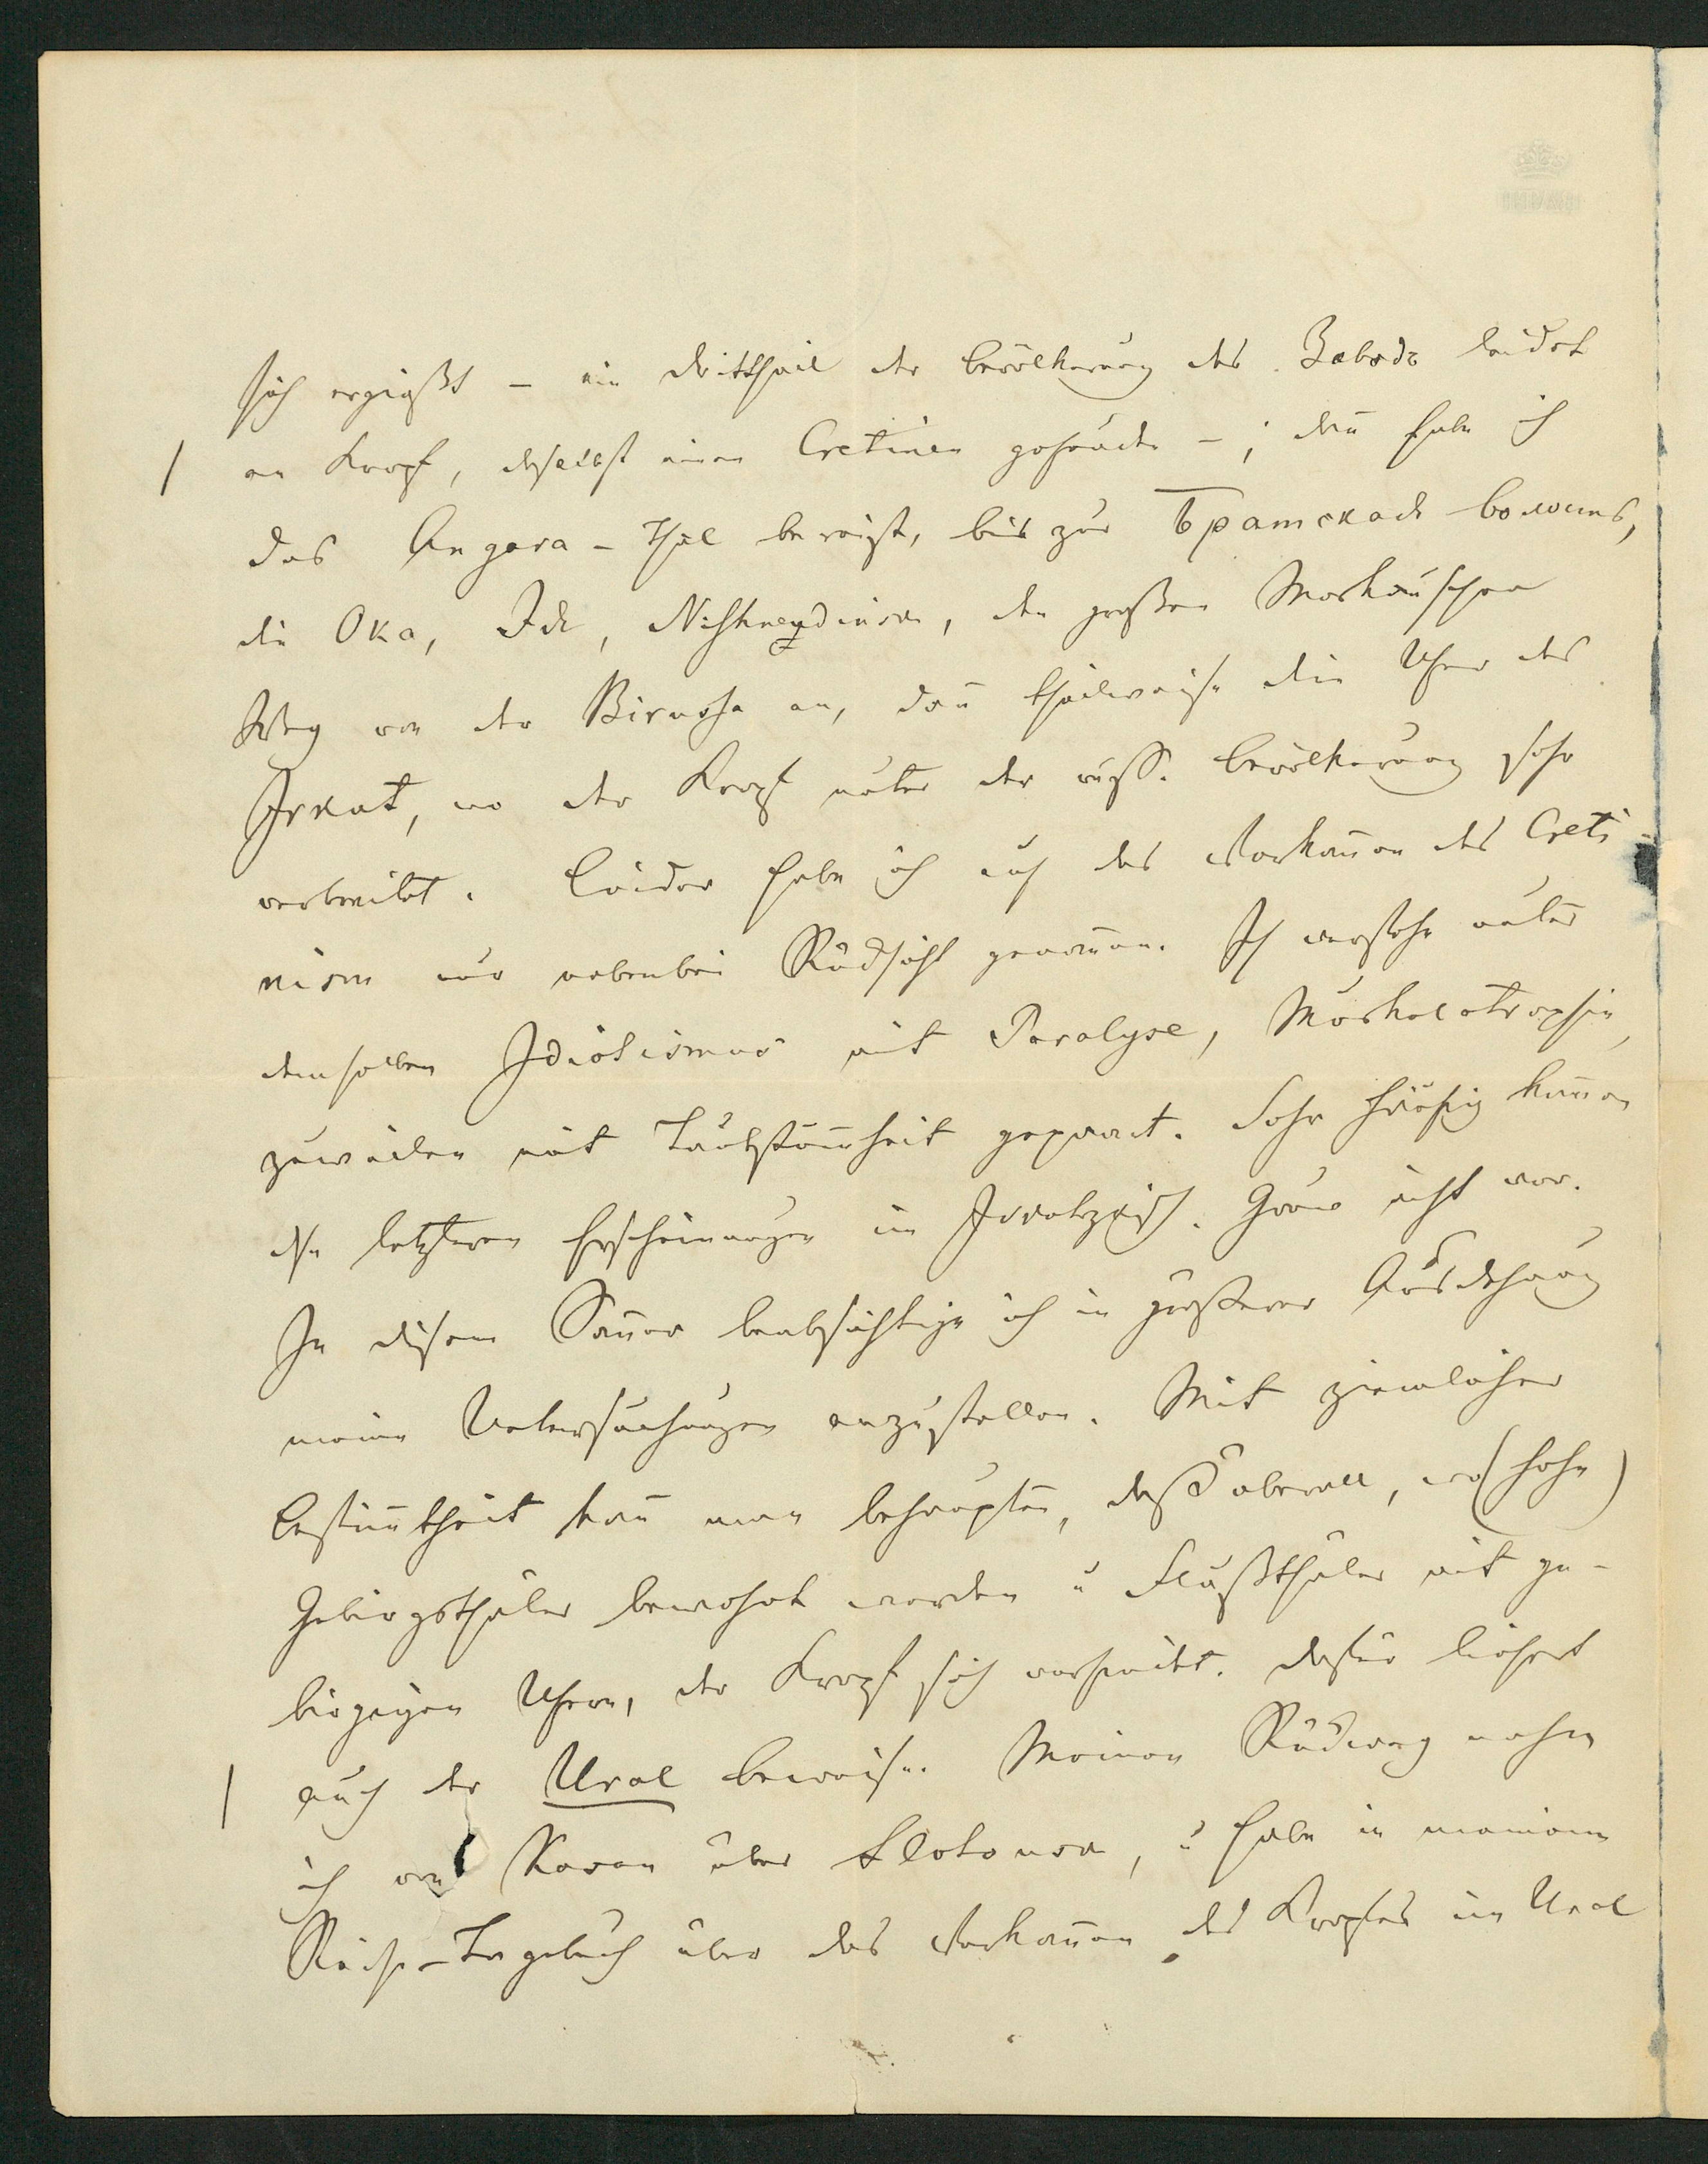 sich ergießt – ein Drittheil der Bevölkerung des Zavods leidet
an Kropf, daselbst einen Cretinen gefunden –; dan̄ habe ich
das Angara-Thal bereist, bis zur Братская волость,
die Oka, Ide, Nishneudinsk, den großen Moskauschen
Weg von der Birussa an, dan̄ theilweise die Ufer des
Irkut, wo der Kropf unter der russ. Bevölkerung sehr
verbreitet. Leider habe ich auf das Vorkom̄en des Creti-
nism nur nebenbei Rücksicht genom̄en. Ich verstehe unter
demselben Idiotismus mit Paralyse, Muskelatrophie,
zuweilen mit Taubstum̄heit gepaart. Sehr häufig kom̄en
die letzteren Erscheinungen im Irkutzkisch. Gouv. nicht vor.
In diesem Som̄er beabsichtige ich in größerer Ausdehnung
meine Untersuchungen anzustellen. Mit ziemlicher
Bestim̄theit kan̄ man behaupten, daß überall, wo (hohe)
Gebirgsthäler bewohnt werden u Flußthäler mit ge-
birgigen Ufern, der Kropf sich vorfindet. Dafür liefert
auch der Ural Beweise. Meinen Rückweg nahm
ich von Kasan über Slatoust, u habe in meinem
Reise-Tagebuch über das Vorkom̄en des Kropfes im Ural